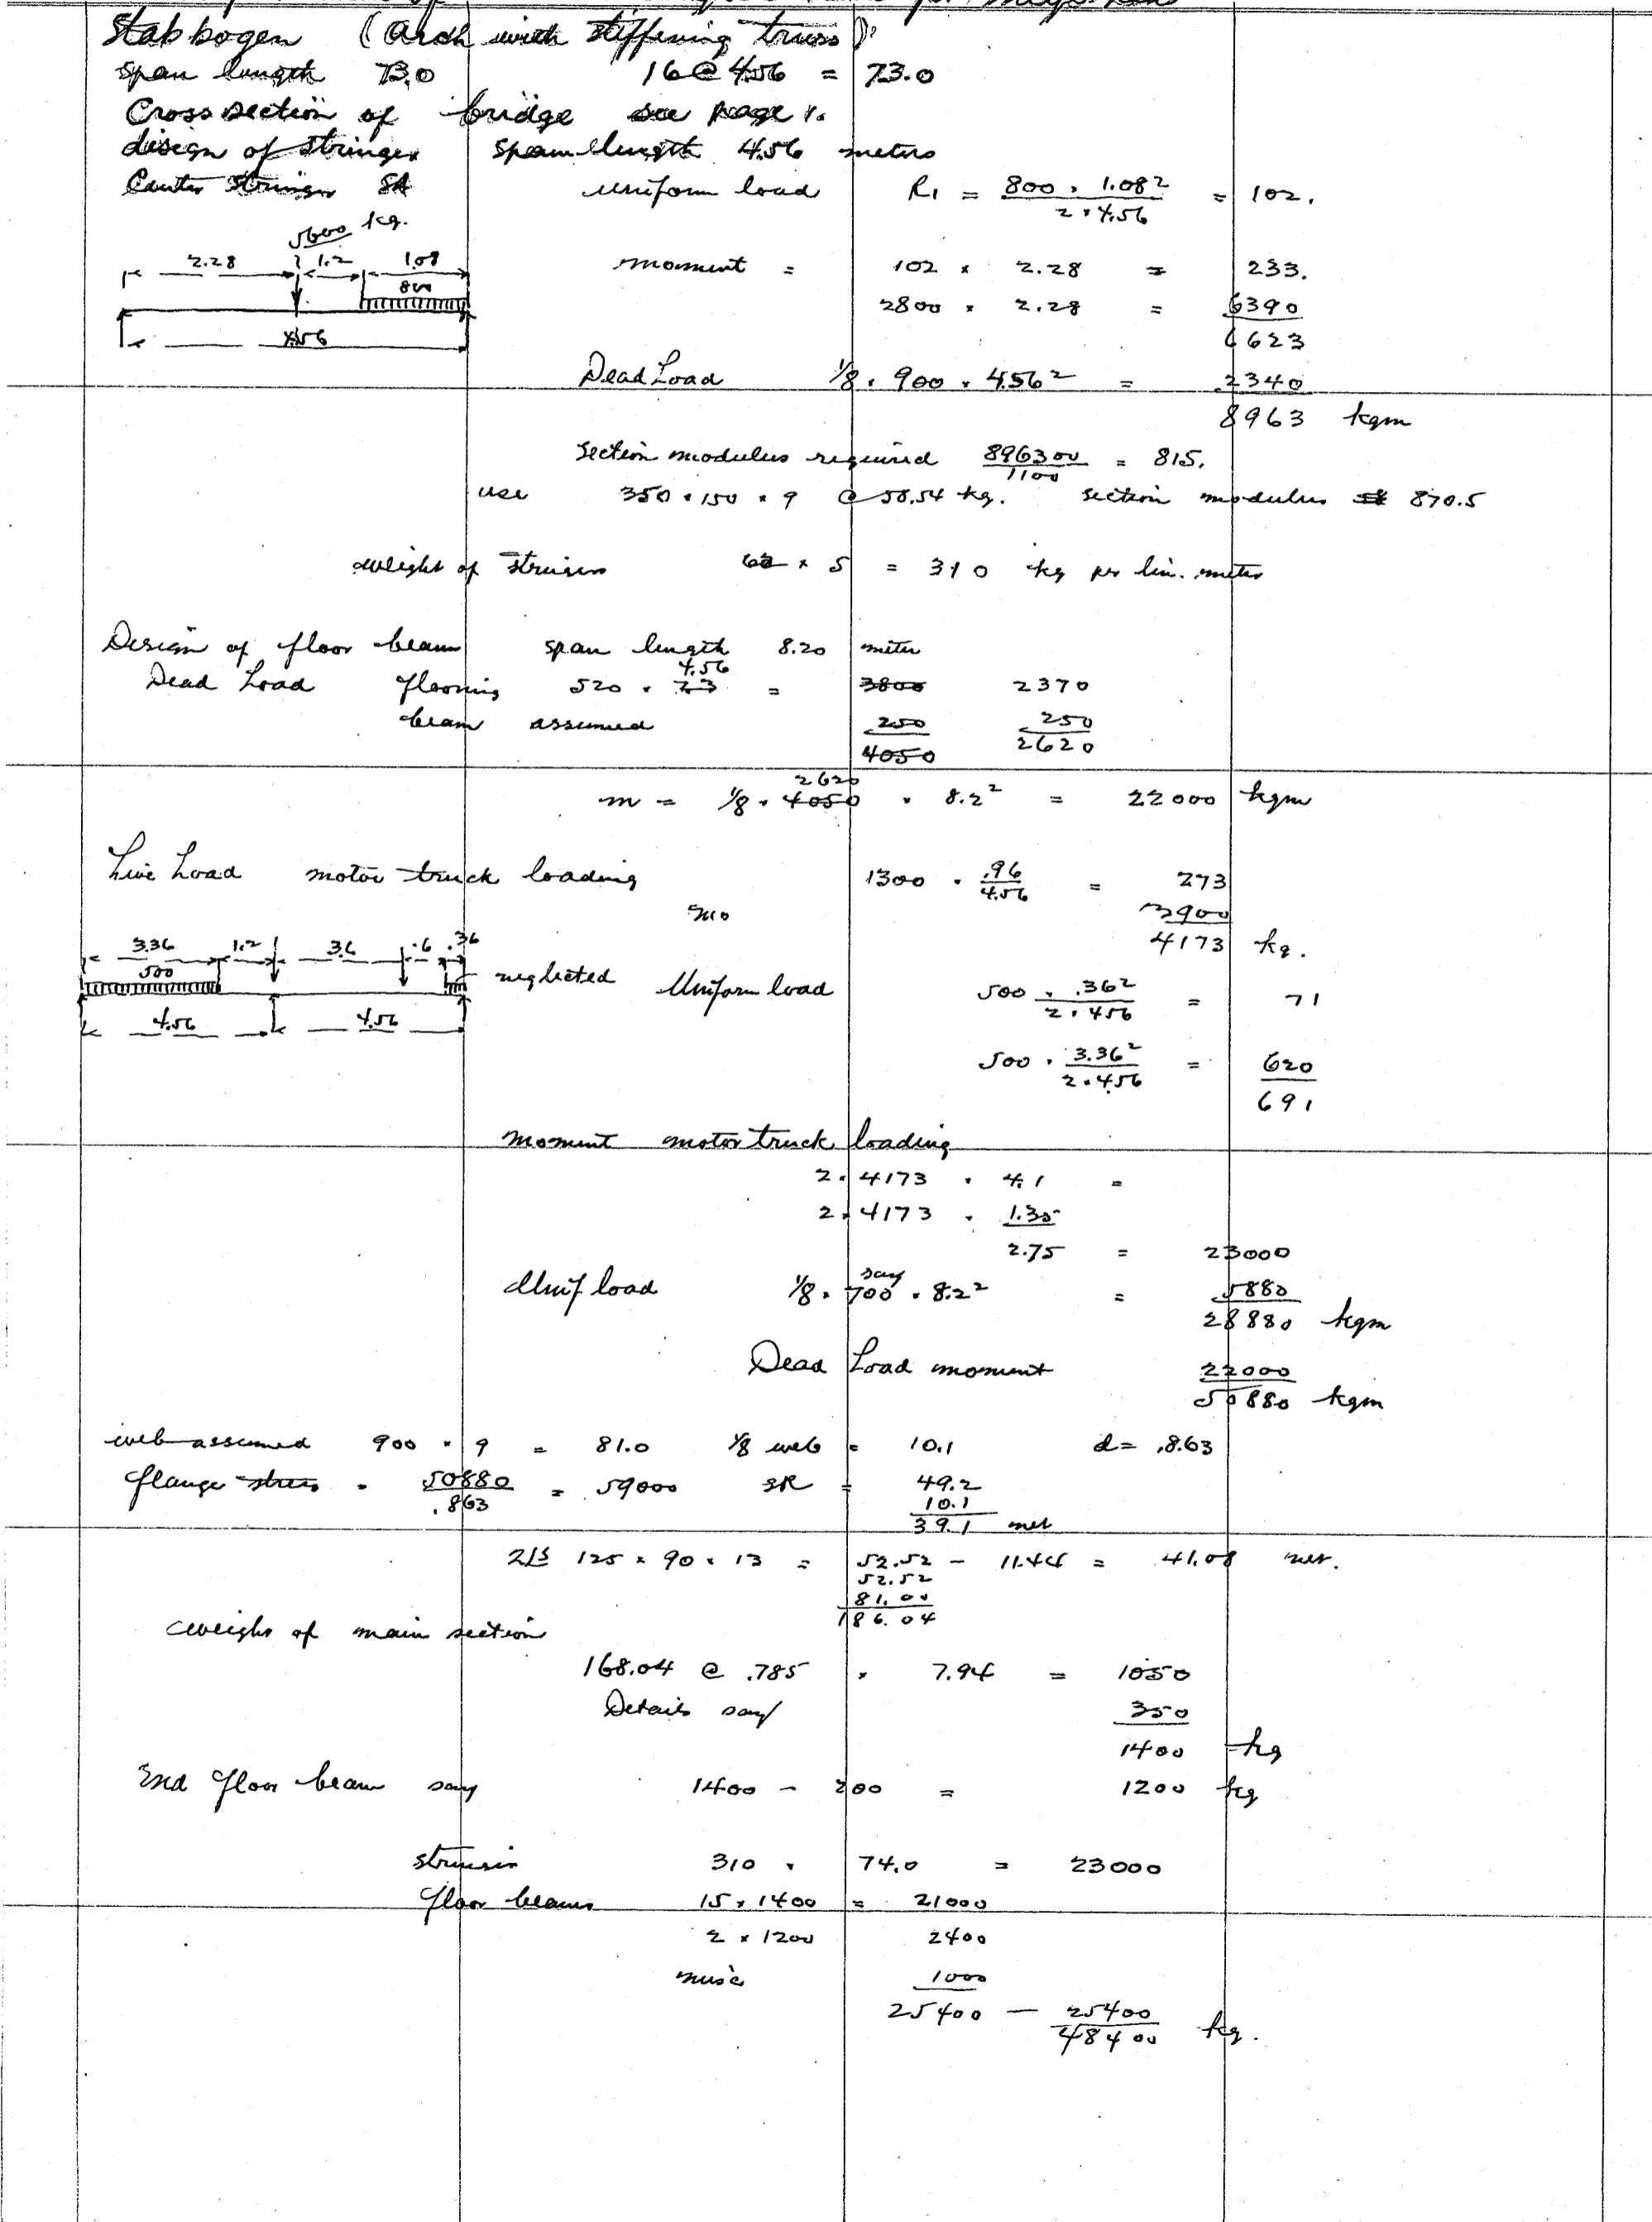 Stabbogen (Arch with stiffening truss)
span length 73.0 16 @ 4.56 = 73.0
Cross section of bridge see page 1.
design of stringer span length 4.56 meters
Center stringer SA uniform load R1 = 800 . 1.08² / 2 . 4.56 = 102.
5600 kg.
2.28 1.2 1.08
800
4.56
moment = 102 x 2.28 = 233.
2800 x 2.28 = 6390
6623
Dead Load 1/8 . 900 . 4.56² = 2340
8963 kgm
section modulus required 896300 / 1100 = 815.
use 350 . 150 . 9 @ 58.54 kg. section modulus 870.5
weight of stringers 62 x 5 = 310 kg per lin. meter
Design of floor beam span length 8.20 meter
Dead Load flooring 520 . 7.3 4.56 = 3800 2370
beam assumed 250 250
4050 2620
m = 1/8 . 4050 2620 . 8.2² = 22000 kgm
Live Load motor truck loading 1300 . .96 / 4.56 = 273
3900
4173 kg.
3.36 1.2 3.6 .6 .36
500
neglected
4.56 4.56
Uniform load 500 . .36² / 2 . 4.56 = 71
500 . 3.36² / 2 . 4.56 = 620
691
moment motor truck loading
2 . 4173 . 4.1 =
2 . 4173 . 1.35
2.75 = 23000
Unif load 1/8 . say 700 . 8.2² = 5880
28880 kgm
Dead Load moment 22000
50880 kgm
web assumed 900 x 9 = 81.0 1/8 web = 10.1 d = .863
flange stress = 50880 / .863 = 59000 SR = 49.2
10.1
39.1 net
2Ls 125 x 90 x 13 = 52.52 - 11.44 = 41.08 net.
52.52
81.00
186.04
weight of main section
168.04 @ .785 x 7.94 = 1050
Details say 350
1400 kg
End floor beam say 1400 - 200 = 1200 kg
stringer 310 . 74.0 = 23000
floor beams 15 . 1400 = 21000
2 x 1200 2400
misc 1000
25400 — 25400
48400 kg.